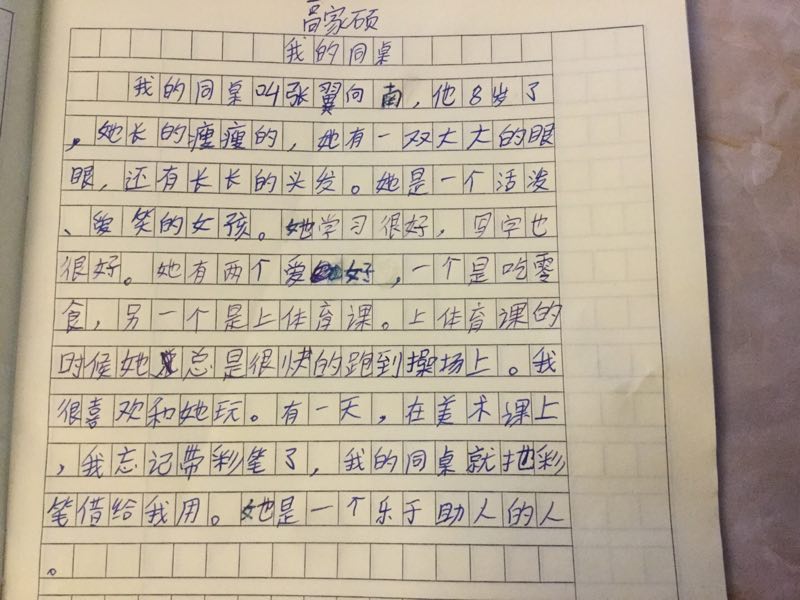 高家硕
我的同桌
我的同桌叫张翼向南，他8岁了
，她长的瘦瘦的，她有一双大大的眼
眼，还有长长的头发。她是一个活泼
、爱笑的女孩。她学习很好，写字也
很好。她有两个爱好，一个是吃零
食，另一个是上体育课。上体育课的
时候她总是很快的跑到操场上。我
很喜欢和她玩。有一天，在美术课上
，我忘记带彩笔了，我的同桌就把彩
笔借给我用。她是一个乐于助人的人
。